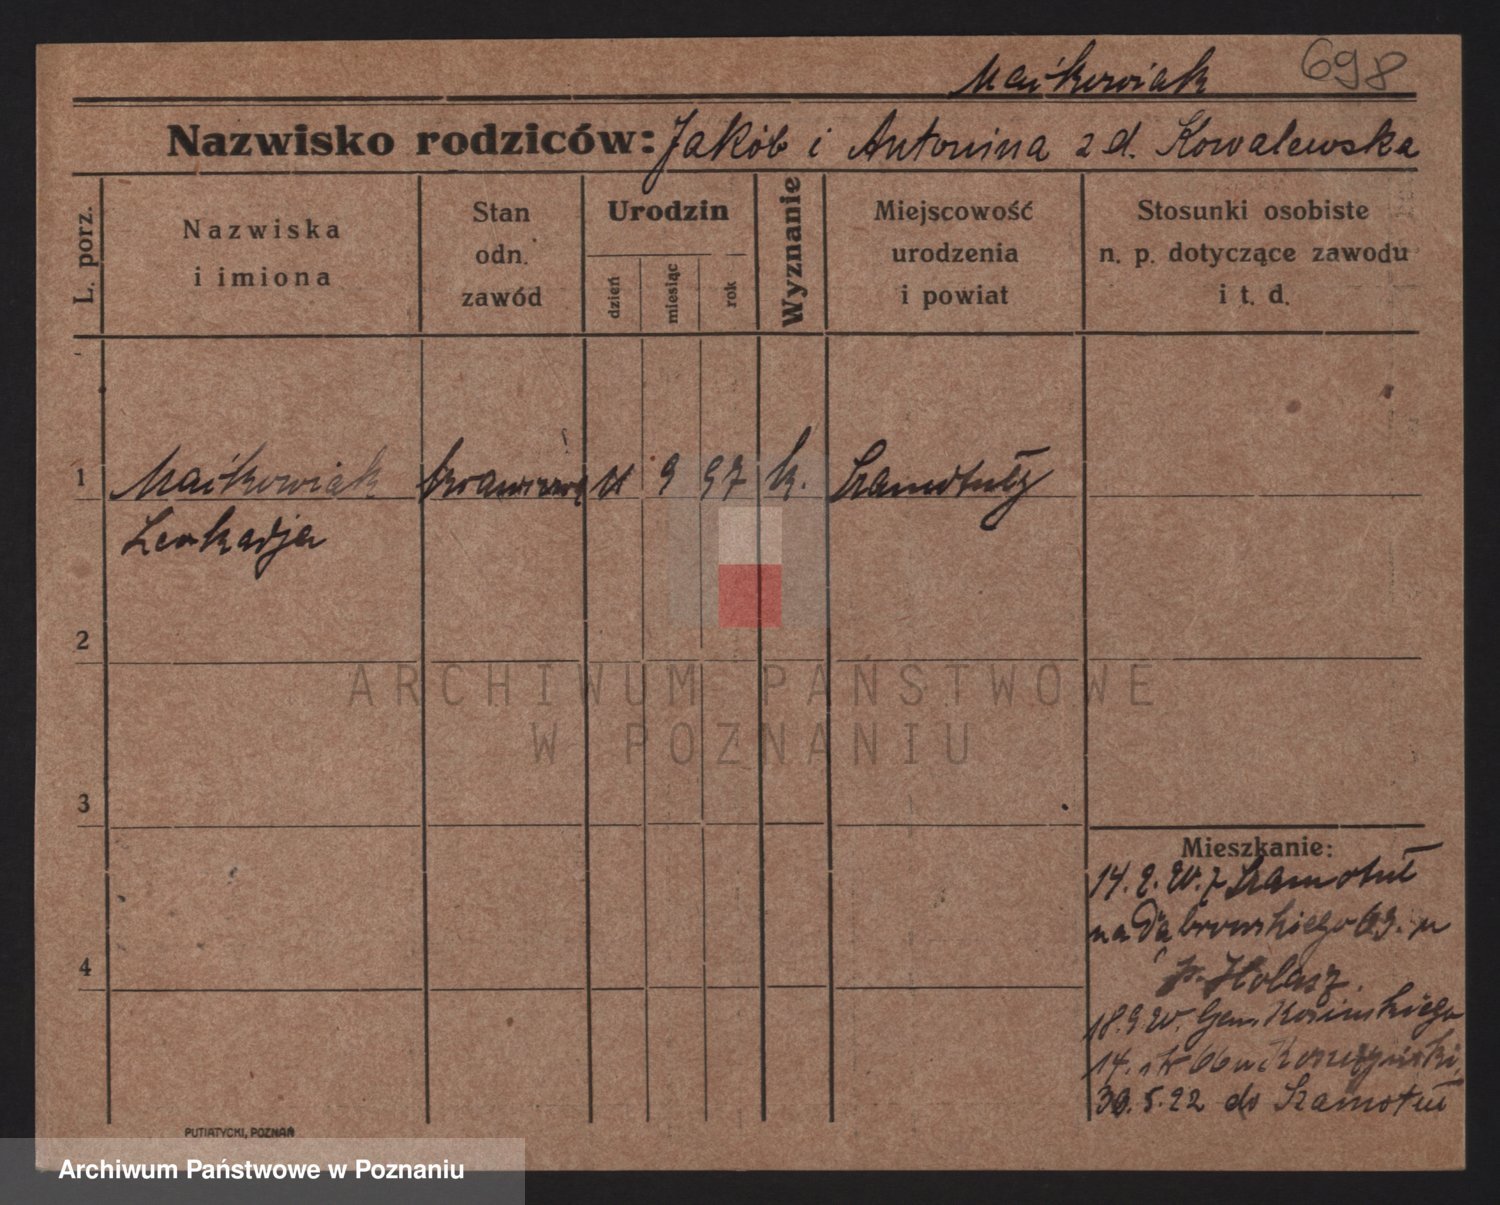 Maćkowiak 698
Nazwisko rodziców: Jakób i Antonina z d. Kowalewska
L. porz.
Nazwiska
i imiona
Stan
odn.
zawód
Urodzin
dzień
miesiąc
rok
Wyznanie
Miejscowość
urodzenia
i powiat
Stosunki osobiste
n. p. dotyczące zawodu
i t. d.
1 Maćkowiak 11 9 97 k. Szamotuły
Leokadja
2
3
4
Mieszkanie:
14. 2. 20. z Szamotuł
na Dąbrowskiego 69. u
p. Holasz.
18. 9 20. Gen. Kosińskiego
14. u
30. 5. 22 do Szamotuł
PUTIATYCKI, POZNAŃ
ARCHIWUM PAŃSTWOWE
W POZNANIU
Archiwum Państwowe w Poznaniu